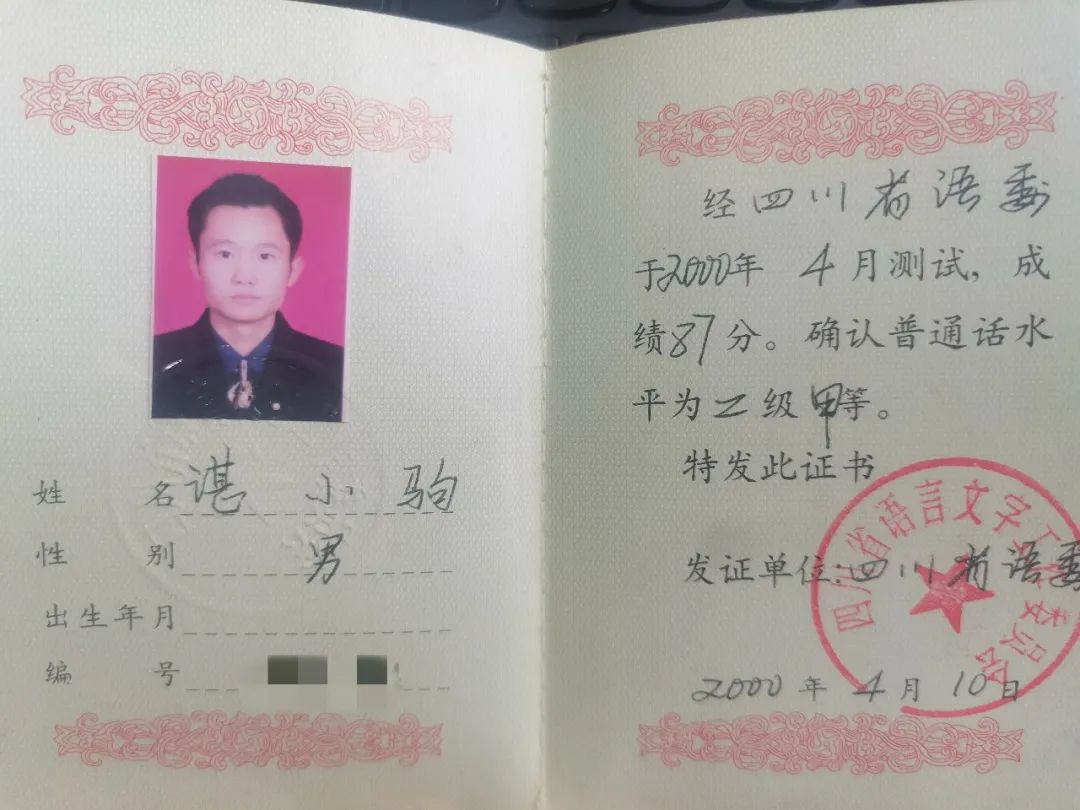 姓名谌小驹
性别男
出生年月
编号
经四川省语委
于2000年 4月测试，成
绩87分。确认普通话水
平为二级甲等。
特发此证书
发证单位：四川省语委
2000年4月10日
四川省语言文字工作委员会